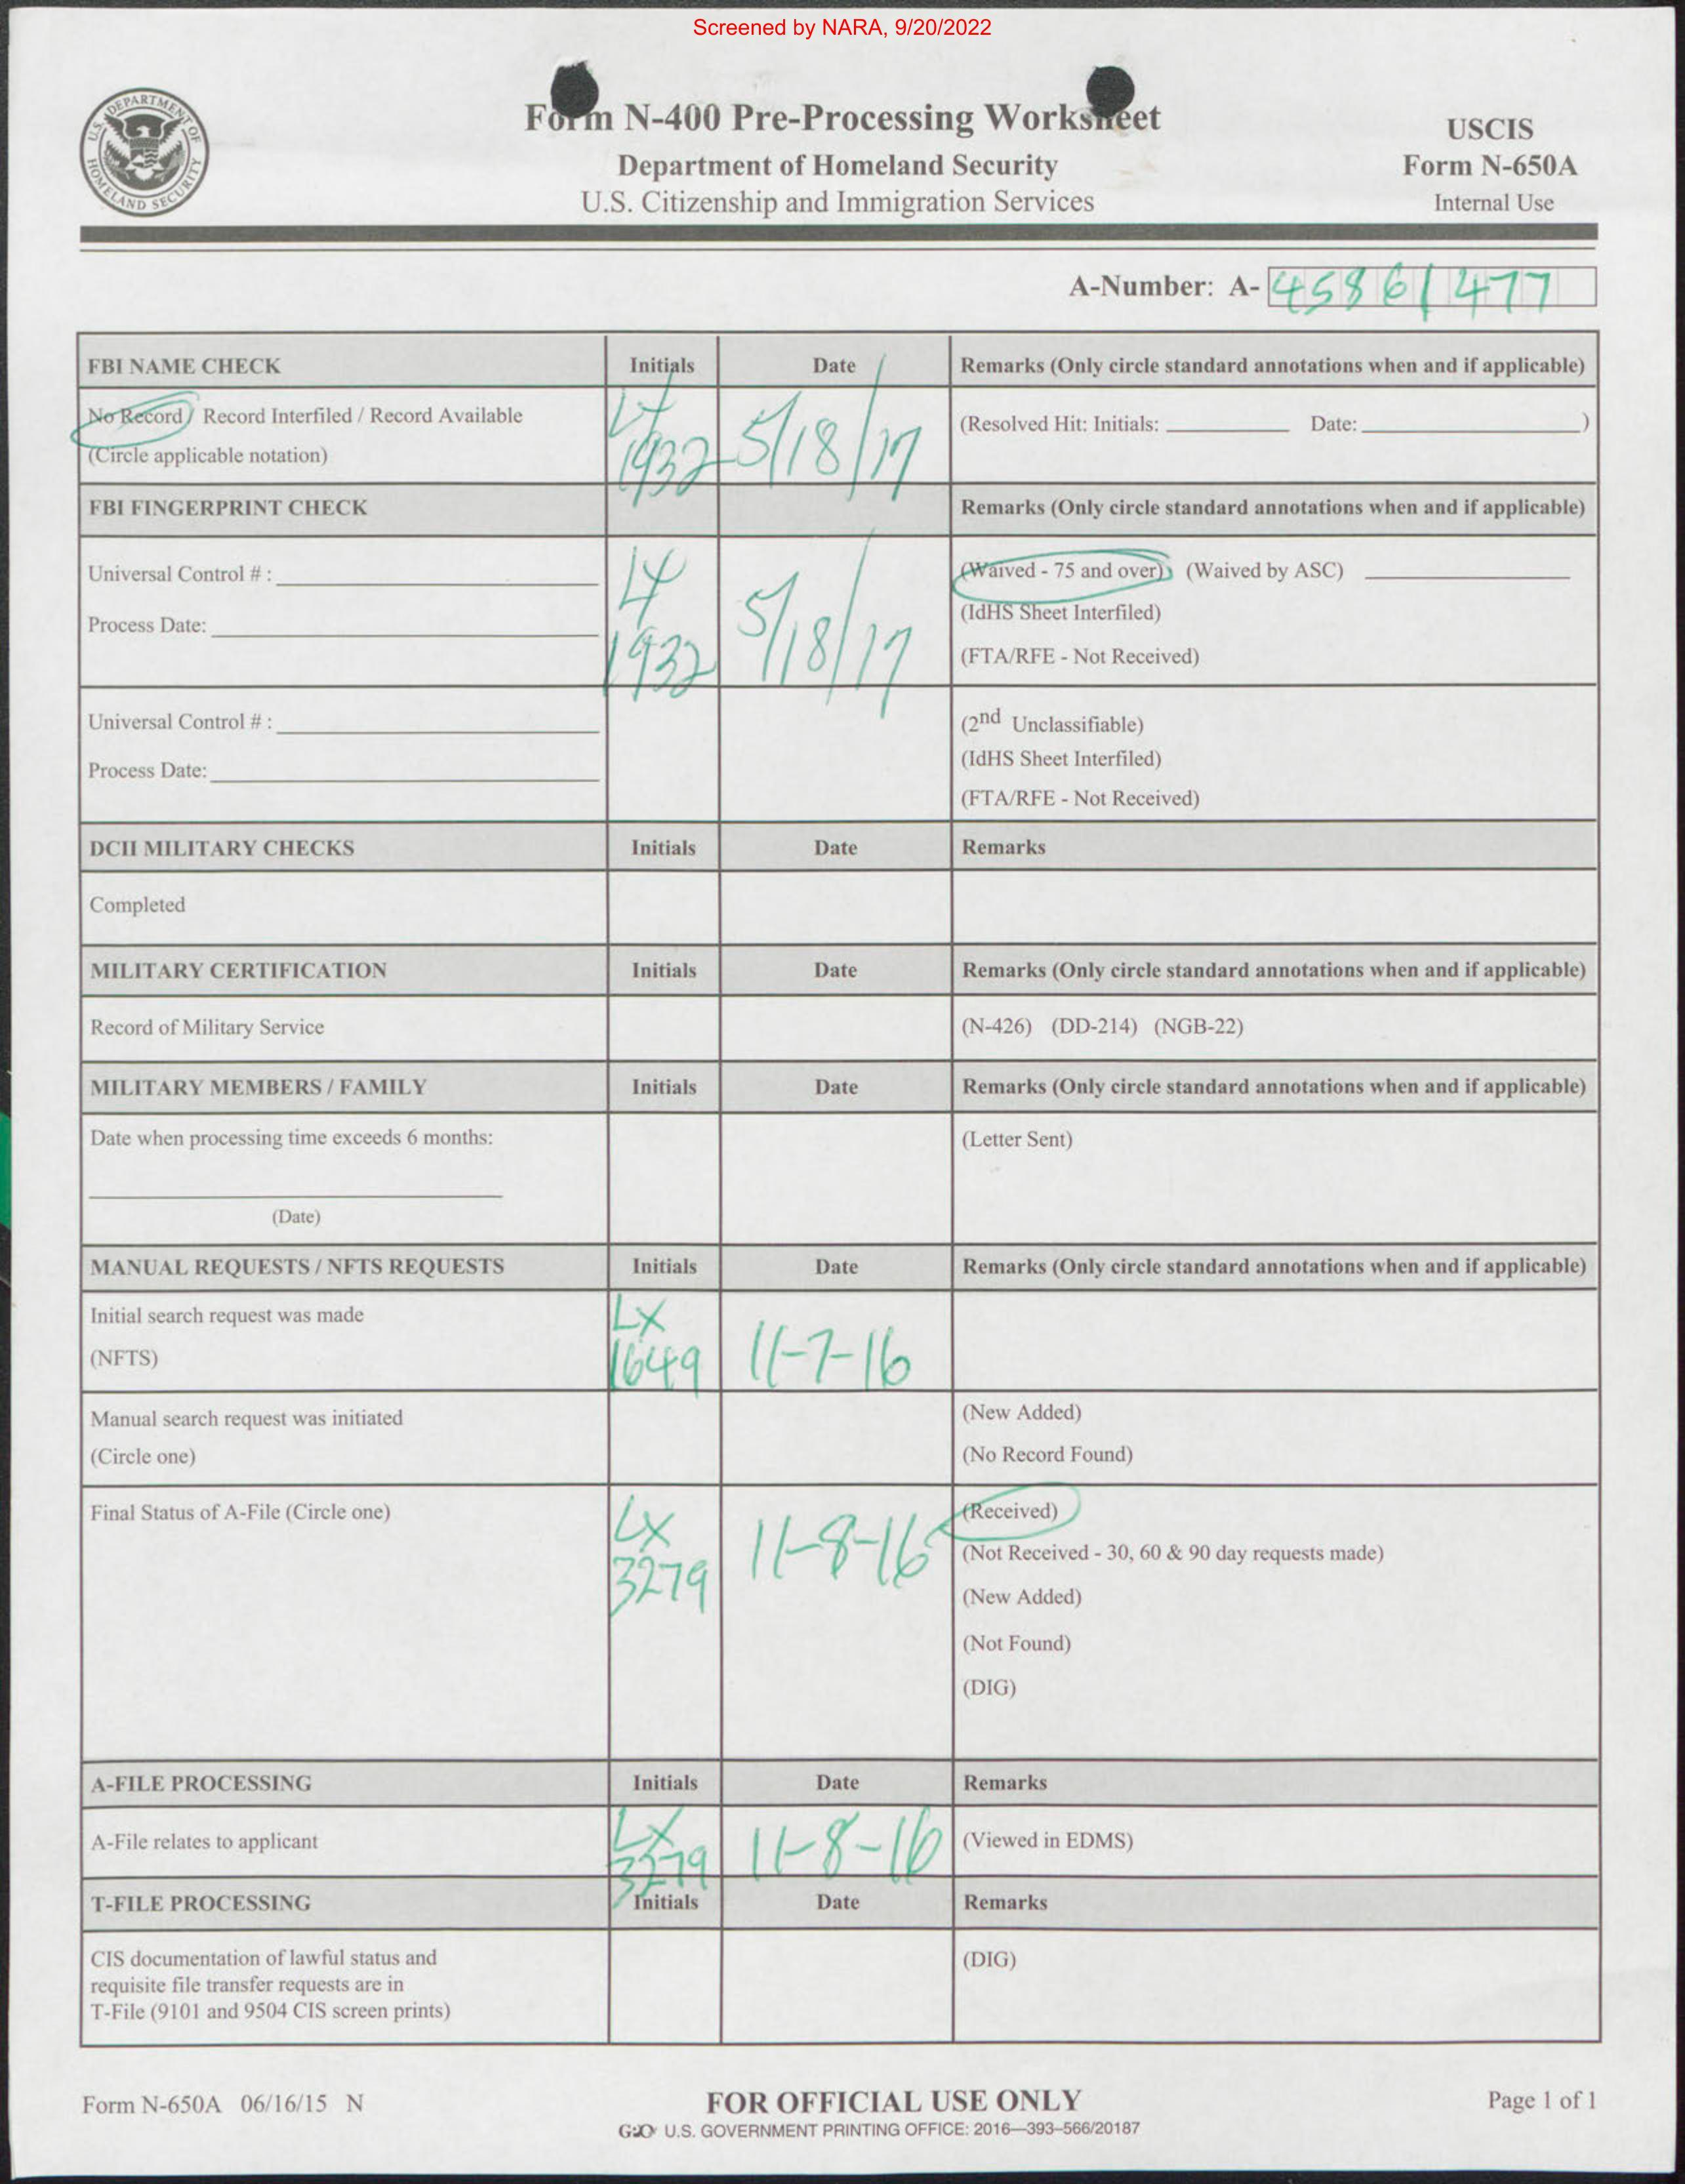 Screened by NARA, 9/20/2022
U.S. DEPARTMENT OF HOMELAND SECURITY
Form N-400 Pre-Processing Worksheet
Department of Homeland Security
U.S. Citizenship and Immigration Services
USCIS
Form N-650A
Internal Use
A-Number: A- 45861477
FBI NAME CHECK Initials Date Remarks (Only circle standard annotations when and if applicable)
No Record / Record Interfiled / Record Available
(Circle applicable notation)
1932 5/18/17
(Resolved Hit: Initials: Date: )
FBI FINGERPRINT CHECK Remarks (Only circle standard annotations when and if applicable)
Universal Control # :
Process Date:
1932 5/18/17
(Waived - 75 and over) (Waived by ASC)
(IdHS Sheet Interfiled)
(FTA/RFE - Not Received)
Universal Control # :
Process Date:
(2nd Unclassifiable)
(IdHS Sheet Interfiled)
(FTA/RFE - Not Received)
DCII MILITARY CHECKS Initials Date Remarks
Completed
MILITARY CERTIFICATION Initials Date Remarks (Only circle standard annotations when and if applicable)
Record of Military Service (N-426) (DD-214) (NGB-22)
MILITARY MEMBERS / FAMILY Initials Date Remarks (Only circle standard annotations when and if applicable)
Date when processing time exceeds 6 months: (Letter Sent)
(Date)
MANUAL REQUESTS / NFTS REQUESTS Initials Date Remarks (Only circle standard annotations when and if applicable)
Initial search request was made
(NFTS)
LX
1649 11-7-16
Manual search request was initiated
(Circle one)
(New Added)
(No Record Found)
Final Status of A-File (Circle one)
LX
3279 11-8-16
(Received)
(Not Received - 30, 60 & 90 day requests made)
(New Added)
(Not Found)
(DIG)
A-FILE PROCESSING Initials Date Remarks
A-File relates to applicant
LX
3279 11-8-16
(Viewed in EDMS)
T-FILE PROCESSING Initials Date Remarks
CIS documentation of lawful status and
requisite file transfer requests are in
T-File (9101 and 9504 CIS screen prints)
(DIG)
Form N-650A 06/16/15 N
FOR OFFICIAL USE ONLY
Page 1 of 1
U.S. GOVERNMENT PRINTING OFFICE: 2016—393-566/20187